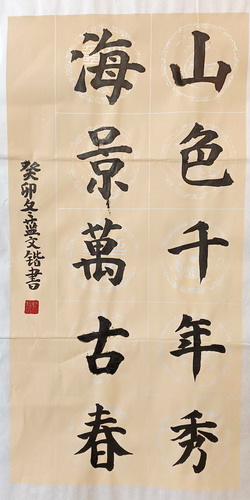 山色千年秀
海景萬古春
癸卯冬藍文鍇書